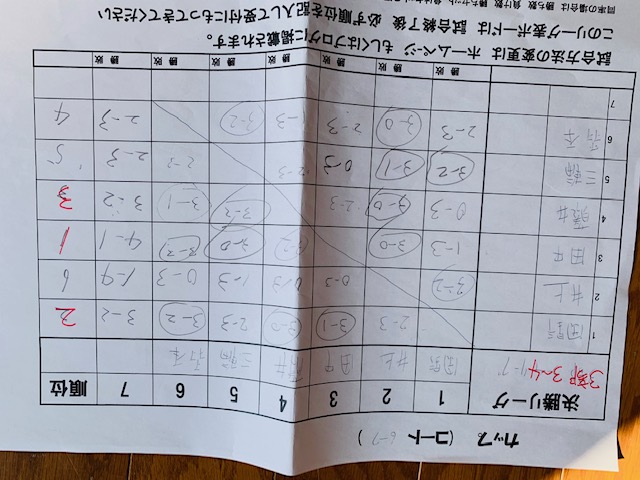 カップ。(コート 6-7 )
決勝リーグ 1 2 3 4 5 6 7 順位
3部 3〜4リーグ 井上 田中 藤井 三輪
1 2-3 3-1 3-0 2-3 3-2 3-2 2
2 井上 3-2 0-3 0-3 1-3 0-3 1-4 6
3 田中 1-3 3-0 3-0 3-2 4-1 1
4 藤井 0-3 3-0 2-3 3-2 3-1 3-2 3
5 三輪 3-2 3-1 0-3 2-3 2-3 5
6 2-3 3-0 2-3 1-3 3-2 2-3 4
7
勝 敗 勝 敗 勝 敗 勝 敗 勝 敗 勝 敗 勝 敗
試合方法の変更は ホームページ もしくはブログに掲載されます。
このリーグ表ボードは 試合終了後 必ず順位を記入して受付にもってきてください